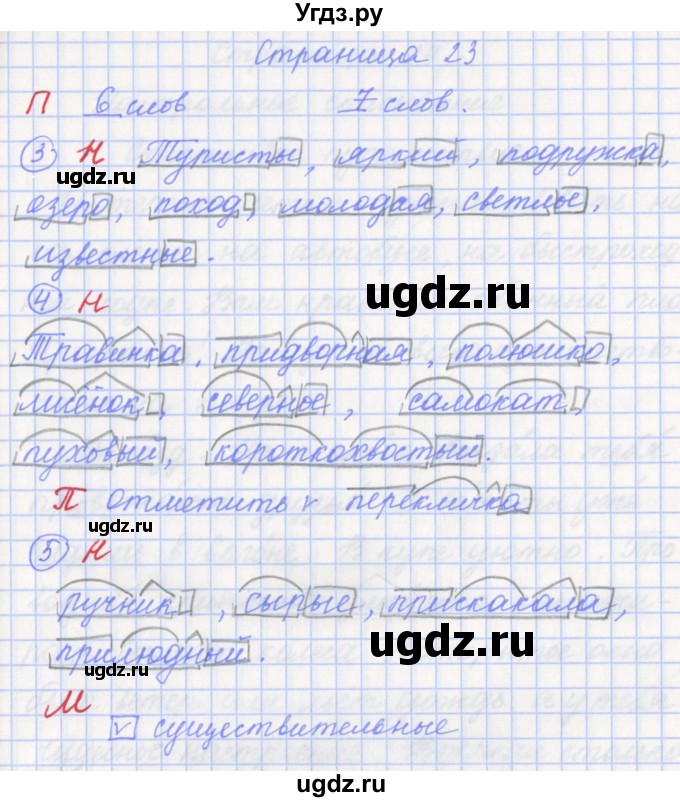 Угдз.ру
Страница 23
П 6 слов 7 слов.
3 Н Туристы, яркий, подружка,
ugdz.ru
озеро, поход, молодая, светлое,
известные.
ugdz.ru
4 Н
Травинка, придворная, полюшко,
лисёнок, северное, самокат,
пуховый, короткохвостый.
П отметить v перекличка
ugdz.ru
5 Н
ручник, сырые, прискакала,
ugdz.ru ugdz.ru
прилюдный.
М
v существительные
ugdz.ru